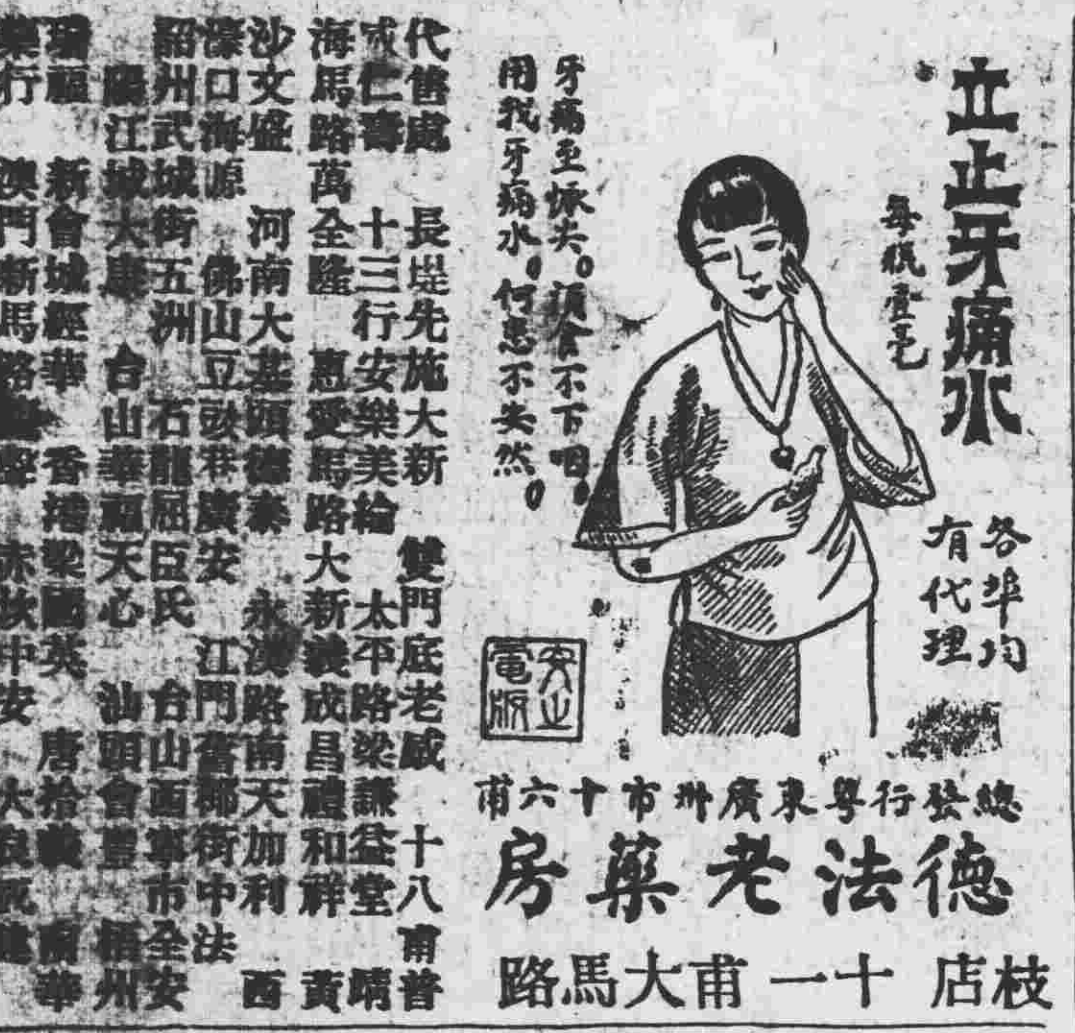 立止牙痛水
每瓶壹毫
各埠均
有代理
牙痛至惨矣。頂食不下咽。
用我牙痛水。何患不失然。
安止
電版
總發行粤東廣州市十六甫
德法老藥房
枝店 十一甫大馬路
代售處 長堤先施大新 雙門底老威 十八甫普
濟仁壽 十三行安樂美綸 太平路梁謙益堂 晴
海馬路萬全隆 惠愛馬路大新 裝成昌禮和祥 黃
沙文盛 河南大基頭德泰 永漢路南天加利 西
濠口海源 佛山豆豉巷廣安 江門舊鄉街中法
韶州武城街五洲 石龍屈臣氏 台山西寧市全安
陽江城大康 台山華福天心 汕頭會豐 梧州
瑞福 新會城經華 香港梁國英 唐拾義 南華
藥行 澳門新馬路 赤坎中安